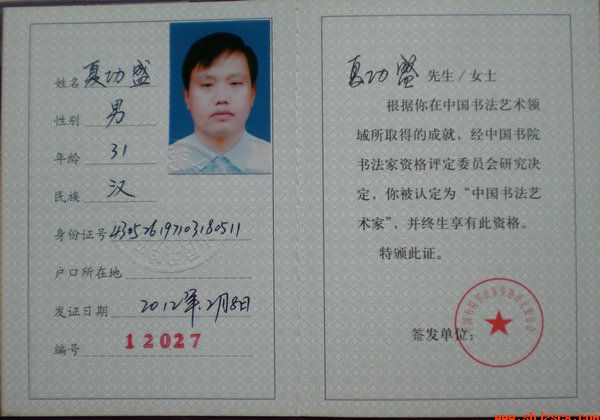 姓名 夏功盛
性别 男
年龄 31
民族 汉
身份证号 430526197103180511
户口所在地
发证日期 2012年.2月8日
编号 12027
夏功盛 先生/女士
根据你在中国书法艺术领
域所取得的成就，经中国书院
书法家资格评定委员会研究决
定，你被认定为“中国书法艺
术家”，并终生享有此资格。
特颁此证。
签发单位：